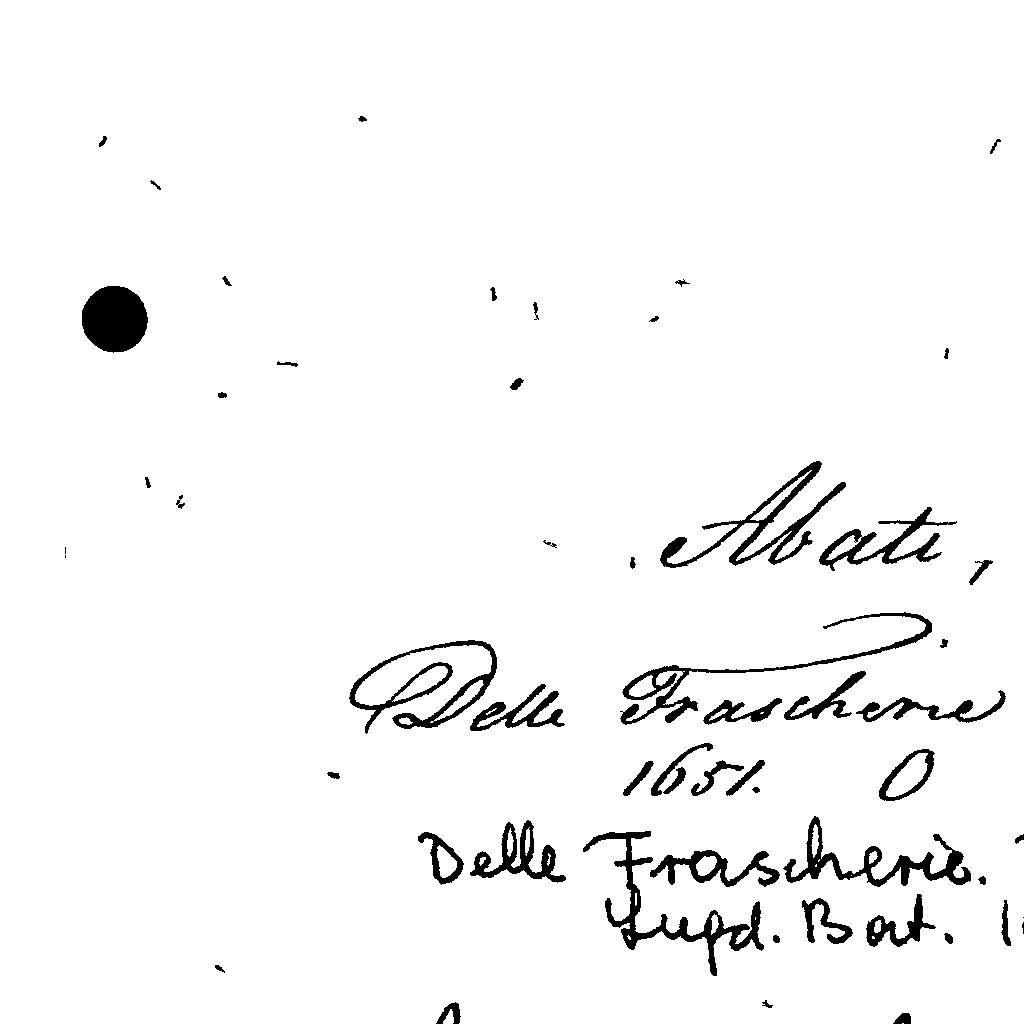 Abati,
Delle Frascherie
1651. O
Delle Frascherie.
Lugd. Bat.